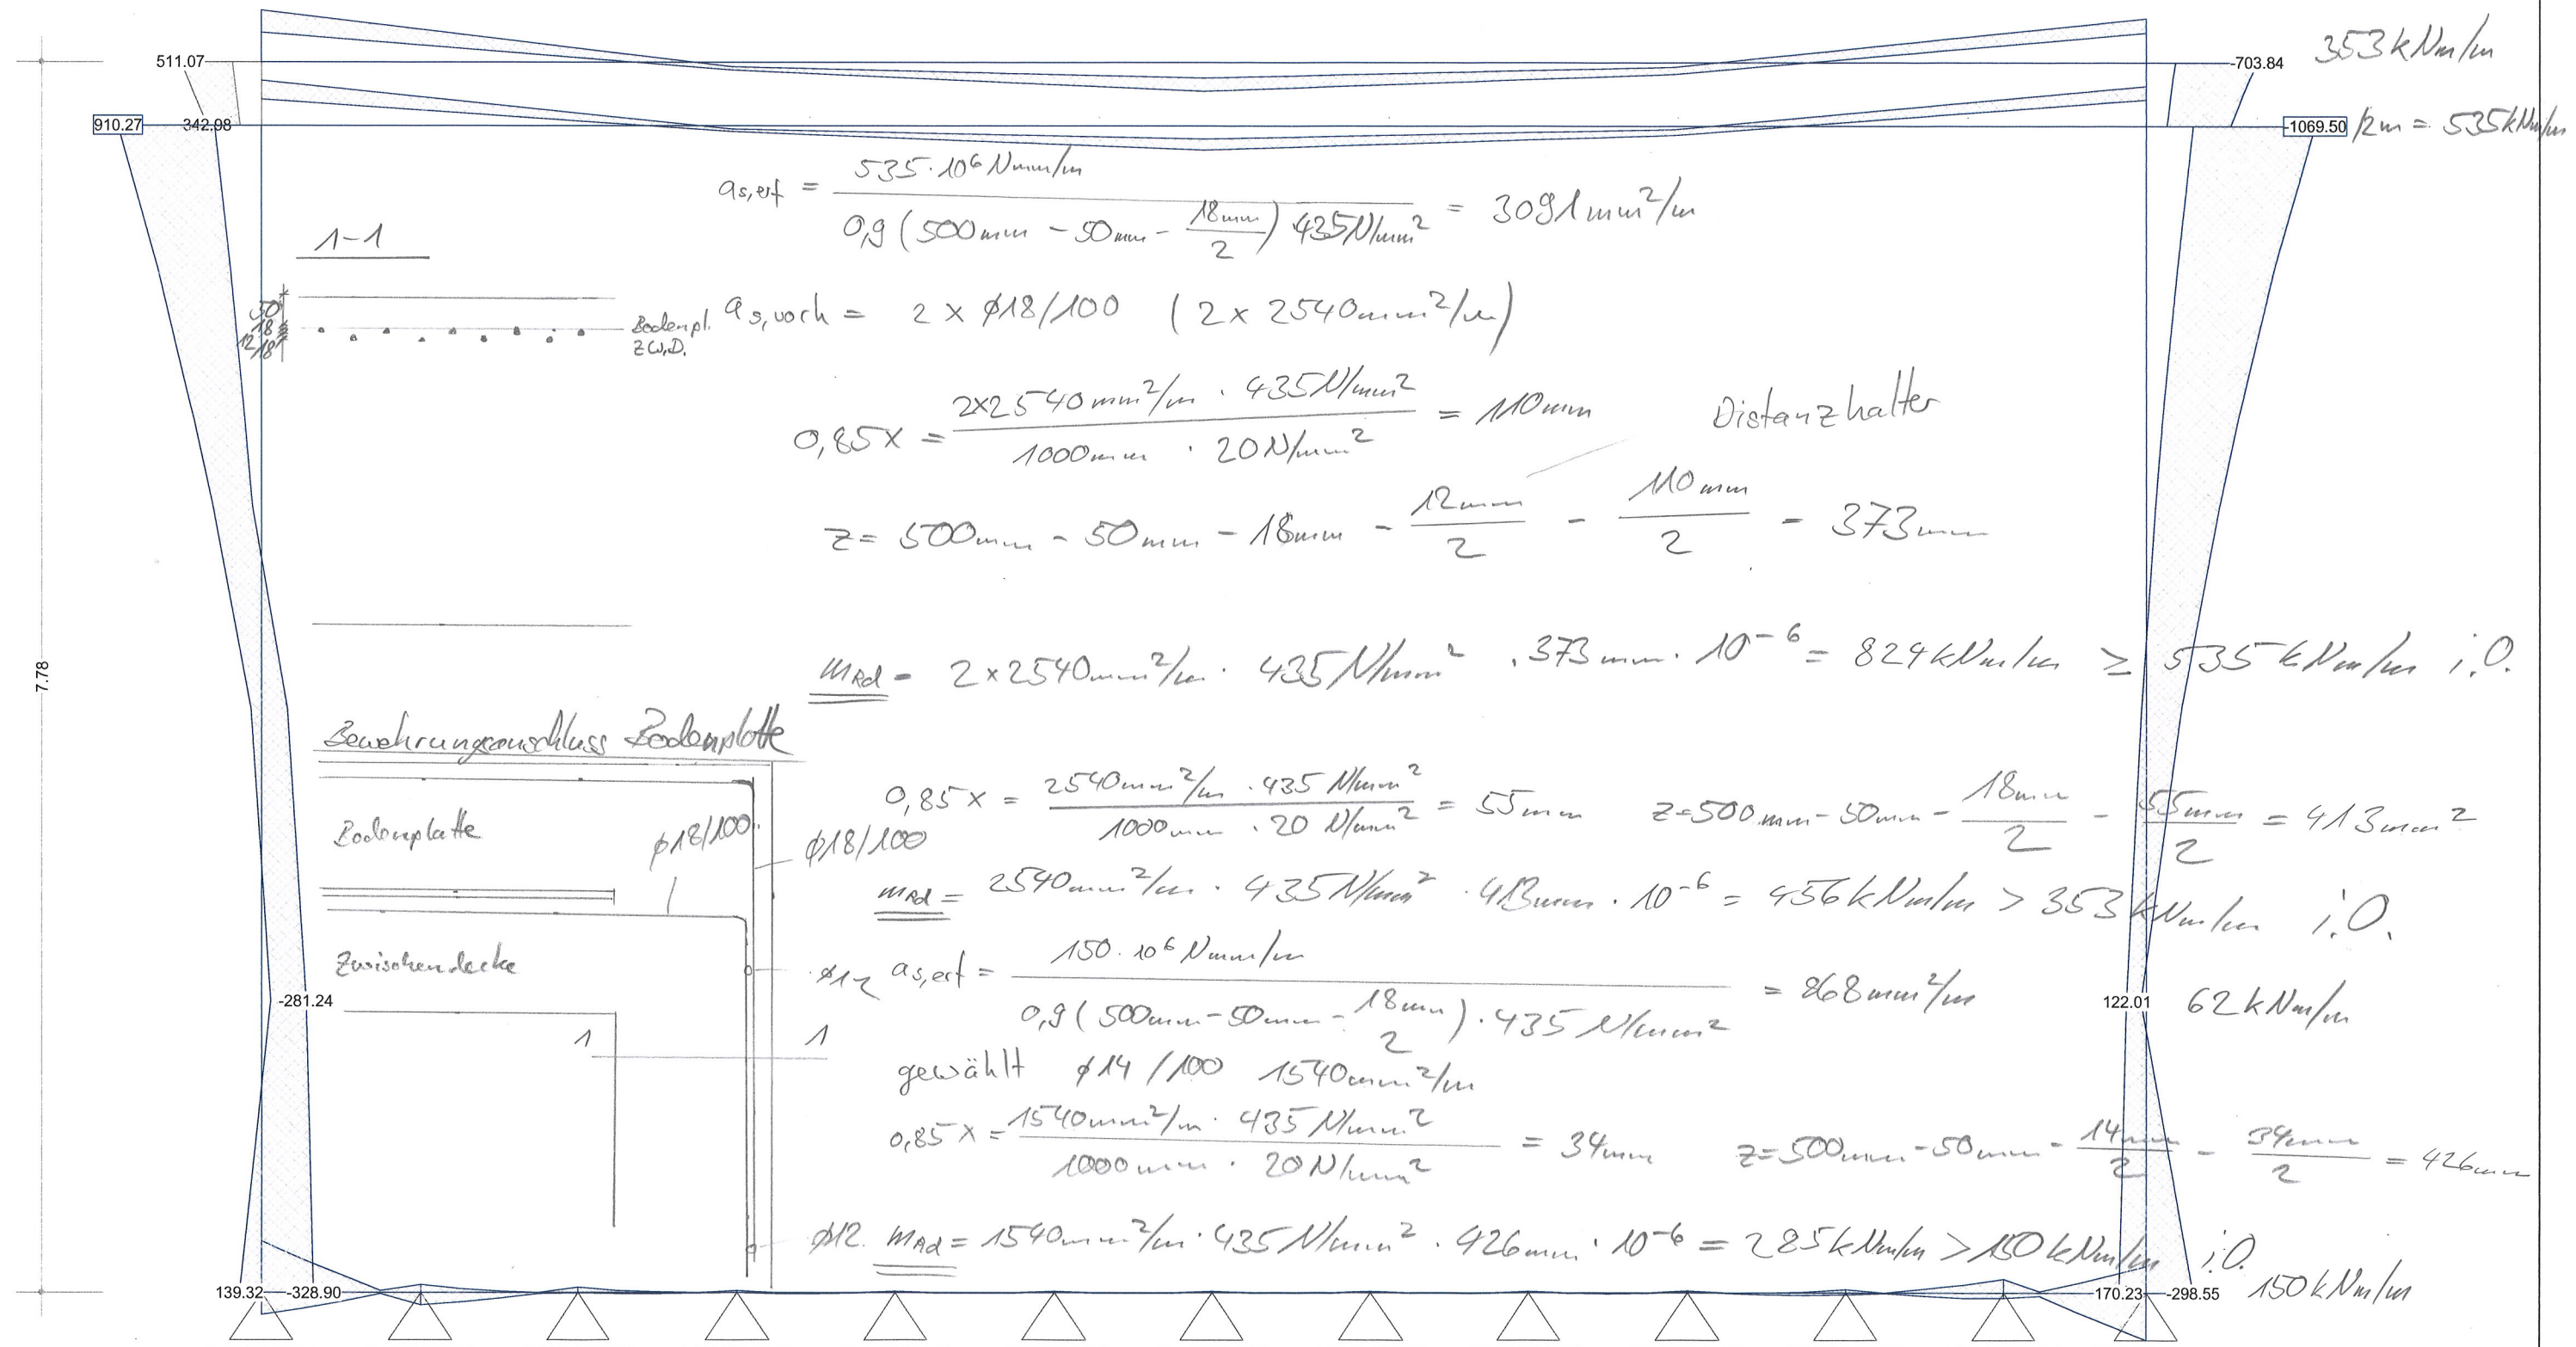 353 kNm/m
511.07
-703.84
910.27
342.98
-1069.50 /2m = 535 kNm/m
as,erf = 535·10⁶ Nmm/m / 0,9 (500mm - 50mm - 18mm/2) · 435 N/mm² = 3091 mm²/m
1-1
50
18
12
18
Bodenpl.
ZW.D.
as,vorh = 2 x ø18/100 (2 x 2540mm²/m)
0,85x = 2x2540mm²/m · 435 N/mm² / 1000mm · 20 N/mm² = 110mm
Distanzhalter
z = 500mm - 50mm - 18mm - 12mm/2 - 110mm/2 = 373mm
7.78
mRd = 2 x 2540mm²/m · 435 N/mm² · 373mm · 10⁻⁶ = 824 kNm/m ≥ 535 kNm/m i.O.
Bewehrungsanschluss Bodenplatte
0,85x = 2540mm²/m · 435 N/mm² / 1000mm · 20 N/mm² = 55mm z=500mm - 50mm - 18mm/2 - 55mm/2 = 413mm²
Bodenplatte
ø18/100
ø18/100
mRd = 2540mm²/m · 435 N/mm² · 413mm · 10⁻⁶ = 456 kNm/m > 353 kNm/m i.O.
Zwischendecke
ø12
as,erf = 150·10⁶ Nmm/m / 0,9 (500mm - 50mm - 18mm/2) · 435 N/mm² = 868 mm²/m
-281.24
122.01
62 kNm/m
1
1
gewählt ø14/100 1540mm²/m
0,85x = 1540mm²/m · 435 N/mm² / 1000mm · 20 N/mm² = 34mm z=500mm - 50mm - 14mm/2 - 34mm/2 = 426mm
ø12
mRd = 1540mm²/m · 435 N/mm² · 426mm · 10⁻⁶ = 285 kNm/m > 150 kNm/m i.O.
139.32
-328.90
170.23
-298.55
150 kNm/m